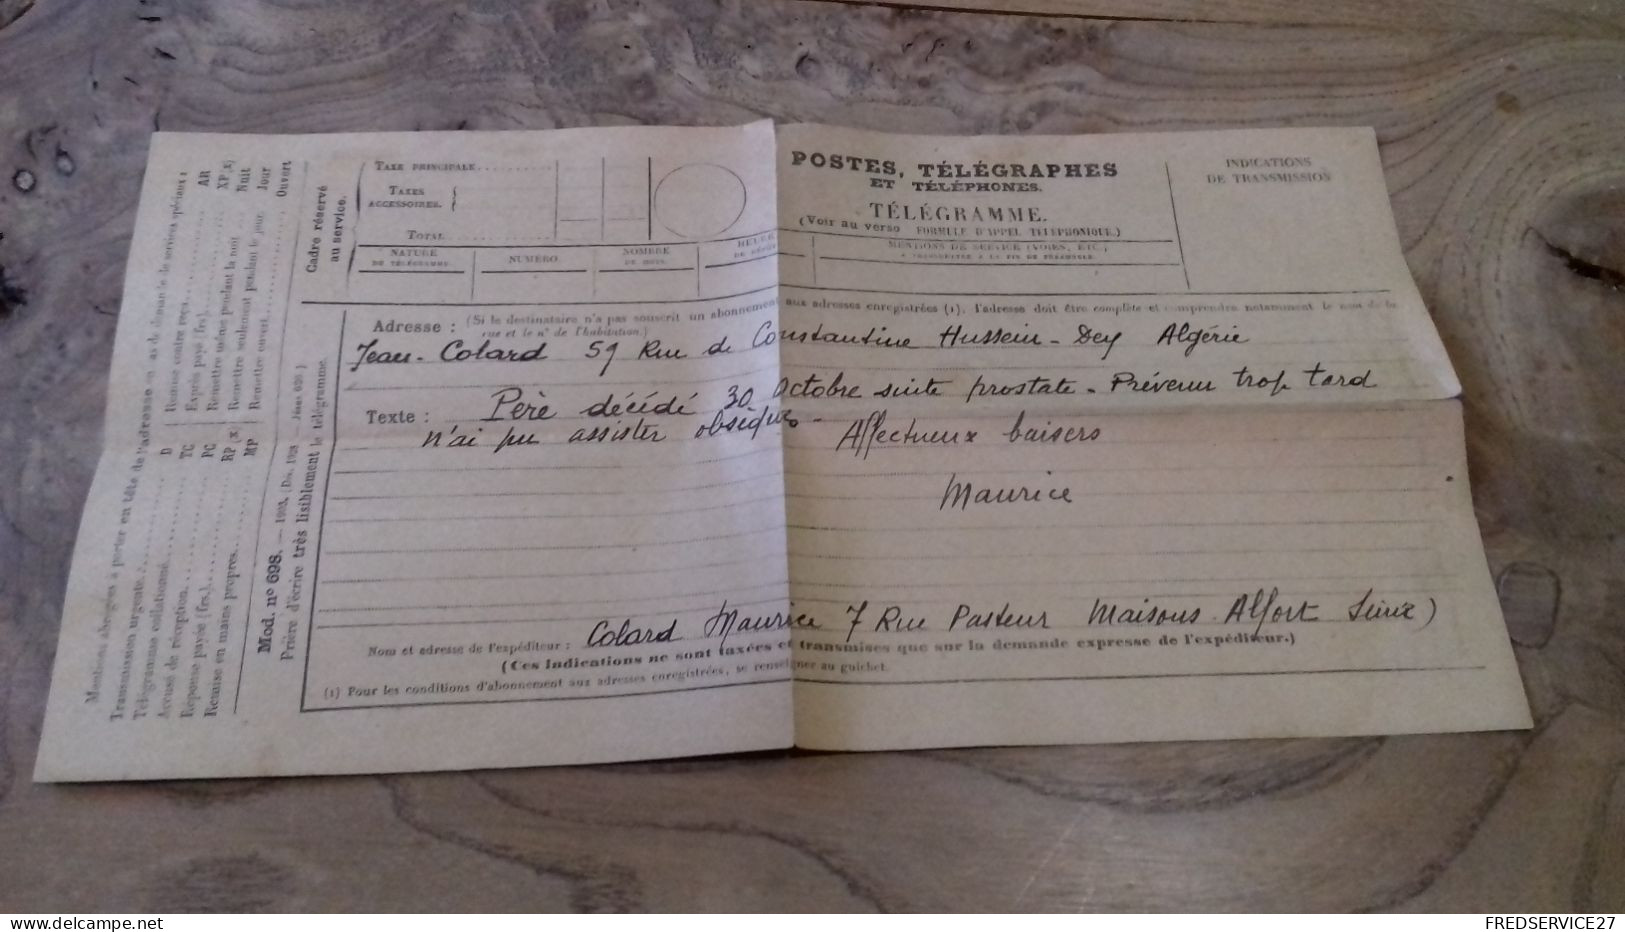 Mentions abrégées à porter en tête de l'adresse en cas de demande de services spéciaux :
Transmission urgente. D
Télégramme collationné TC
Accusé de réception PC
Réponse payée (frs.) RP (x)
Remise en mains propres MP
Remise contre reçu AR
Exprès payé (frs.) XP (x)
Remettre même pendant la nuit Nuit
Remettre seulement pendant le jour Jour
Remettre ouvert Ouvert
Mod. nº 698. — 1903.
Prière d'écrire très lisiblement le télégramme.
Cadre réservé
au service.
TAXE PRINCIPALE
TAXES
ACCESSOIRES.
TOTAL
NATURE
DU TÉLÉGRAMME.
NUMÉRO.
NOMBRE
DE MOTS.
POSTES, TÉLÉGRAPHES
ET TÉLÉPHONES.
TÉLÉGRAMME.
(Voir au verso FORMULE D'APPEL TÉLÉPHONIQUE.)
MENTIONS DE SERVICE (VOIES, ETC.)
À TRANSMETTRE À LA FIN DU PRÉAMBULE.
INDICATIONS
DE TRANSMISSION
Adresse : (Si le destinataire n'a pas souscrit un abonnement aux adresses enregistrées (1), l'adresse doit être complète et comprendre notamment le nom de la
rue et le nº de l'habitation.)
Jean-Colard 59 Rue de Constantine Hussein-Dey Algérie
Texte : Père décédé 30 octobre suite prostate - Prévenu trop tard
n'ai pu assister obsèques - Affectueux baisers
Maurice
Nom et adresse de l'expéditeur : Colard Maurice 7 Rue Pasteur Maisons Alfort Seine)
(Ces indications ne sont taxées et transmises que sur la demande expresse de l'expéditeur.)
(1) Pour les conditions d'abonnement aux adresses enregistrées, se renseigner au guichet.
FREDSERVICE27
delcampe.net